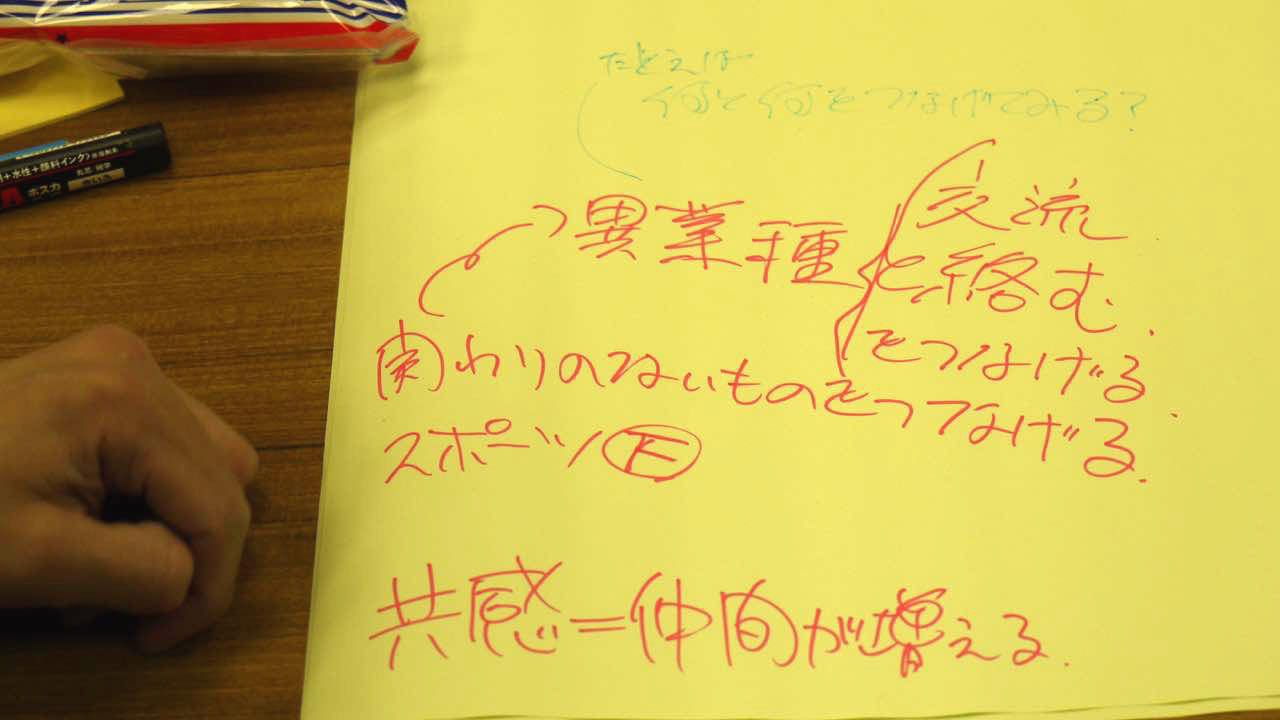 たとえば
何と何をつなげてみる?
異業種
交流.
と絡む.
をつなげる.
関わりのないものをつなげる.
スポーツ
共感=仲間が増える.
+水性+顔料インク>
ポスカ